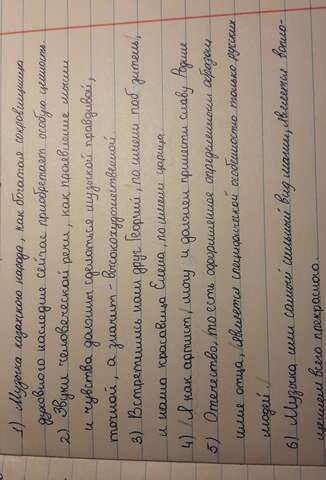 1) Музыка казахского народа, как богатая сокровищница
духовного наследия сейчас приобретает особую ценность.
2) Звуки человеческой речи, как проевление мысли
и чувства должны сделаться музыкой правдивой,
точной, а значит - высокохудожественной.
3) Встретились нам друг Георгий, по имени победитель,
и наша красавица Елена, по имени царица.
4) Я как артист могу и должен принести славу Родине
5) Отечество, то есть оформленное определенным образом
имя отца, является специфической особенностью только русских
людей.
6) Музыка или самый сильный вид магии, является вопло-
щением всего прекрасного.